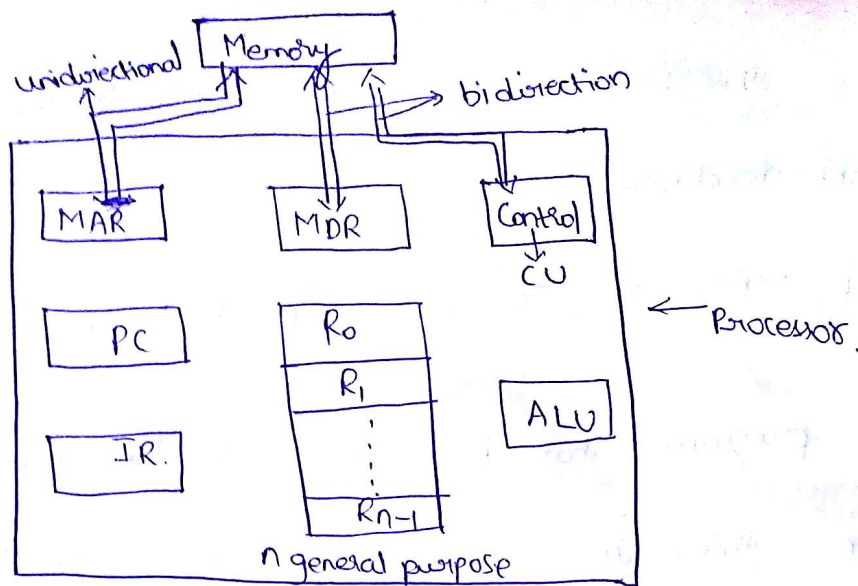 Memory
unidirectional
bidirection
MAR
MDR
Control
CU
PC
R0
Processor.
R1
ALU
IR.
Rn-1
n general purpose